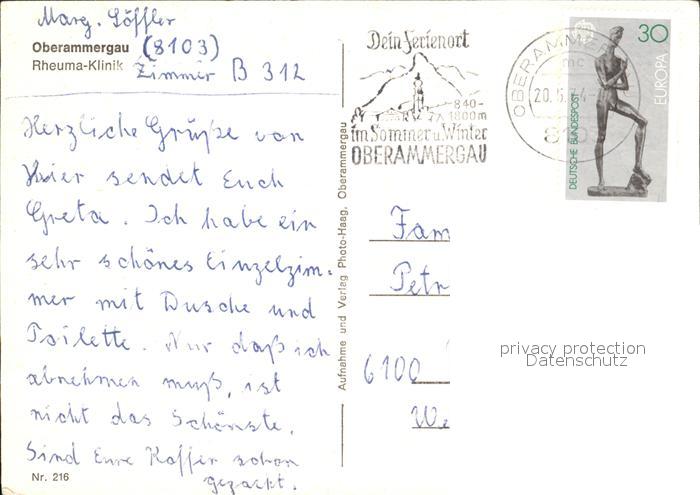 Marg. Löffler
Oberammergau (8103)
Rheuma-Klinik Zimmer B 312
Herzliche Grüße von
Hier sendet Euch
Greta. Ich habe ein
sehr schönes Einzelzim-
mer mit Dusche und
Toilette. Nur daß ich
abnehmen muß, ist
nicht das Schönste.
Sind Eure Koffer schon
gepackt.
Nr. 216
Aufnahme und Verlag Photo-Haag, Oberammergau
Dein Ferienort
840-
1800m
im Sommer u. Winter
OBERAMMERGAU
OBERAMME
mc
20.
30
EUROPA
DEUTSCHE BUNDESPOST
Fam
Petr
6100
We
privacy protection
Datenschutz